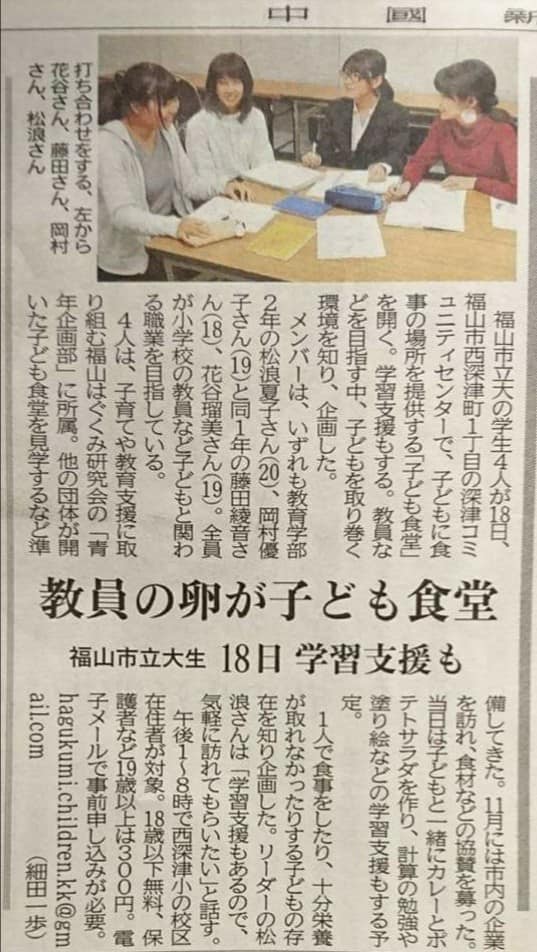 中國新
打ち合わせをする、左から
花谷さん、藤田さん、岡村
さん、松浪さん
福山市立大の学生4人が18日、
福山市西深津町1丁目の深津コミ
ュニティセンターで、子どもに食
事の場所を提供する「子ども食堂」
を開く。学習支援もする。教員な
どを目指す中、子どもを取り巻く
環境を知り、企画した。
メンバーは、いずれも教育学部
2年の松浪夏子さん(20)、岡村優
子さん(19)と同1年の藤田綾音さ
ん(18)、花谷瑠美さん(19)。全員
が小学校の教員など子どもと関わ
る職業を目指している。
4人は、子育てや教育支援に取
り組む福山はぐくみ研究会の「青
年企画部」に所属。他の団体が開
いた子ども食堂を見学するなど準
教員の卵が子ども食堂
福山市立大生 18日 学習支援も
備してきた。11月には市内の企業
を訪れ、食材などの協賛を募った。
当日は子どもと一緒にカレーとポ
テトサラダを作り、計算の勉強や
塗り絵などの学習支援もする予
定。
1人で食事をしたり、十分栄養
が取れなかったりする子どもの存
在を知り企画した。リーダーの松
浪さんは「学習支援もあるので、
気軽に訪れてもらいたい」と話す。
午後1~8時で西深津小の校区
在住者が対象。18歳以下無料、保
護者など19歳以上は300円。電
子メールで事前申し込みが必要。
hagukumi.children.kk@gm
ail.com
(細田一歩)